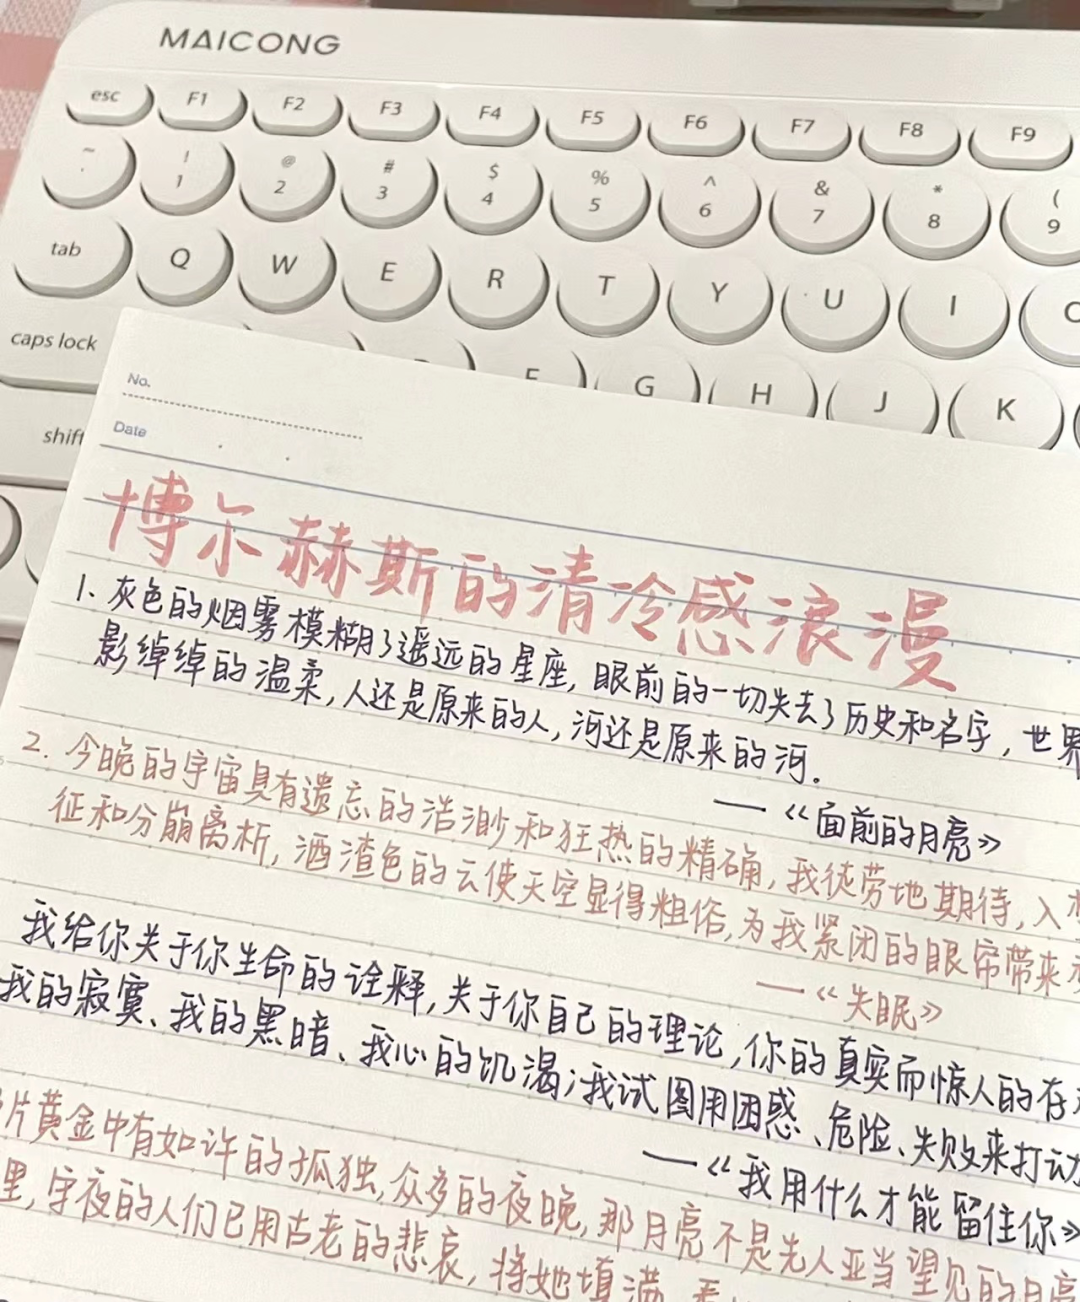 MAICONG
esc F1 F2 F3 F4 F5 F6 F7 F8 F9
~ ! @ # $ % ^ & * (
1 2 3 4 5 6 7 8 9
tab Q W E R T Y U I
caps lock G H J K
shift
No.
Date
博尔赫斯的清冷感浪漫
1. 灰色的烟雾模糊了遥远的星座,眼前的一切失去了历史和名字,世界
影绰绰的温柔,人还是原来的人,河还是原来的河.
——《面前的月亮》
2. 今晚的宇宙具有遗忘的浩渺和狂热的精确,我徒劳地期待,入
征和分崩离析,酒渣色的云使天空显得粗俗,为我紧闭的眼帘带来
——《失眠》
我给你关于你生命的诠释,关于你自己的理论,你的真实而惊人的存
我的寂寞、我的黑暗、我心的饥渴;我试图用困惑、危险、失败来打动
——《我用什么才能留住你》
片黄金中有如许的孤独,众多的夜晚,那月亮不是先人亚当望见的月亮
里,守夜的人们已用古老的悲哀,将她填满